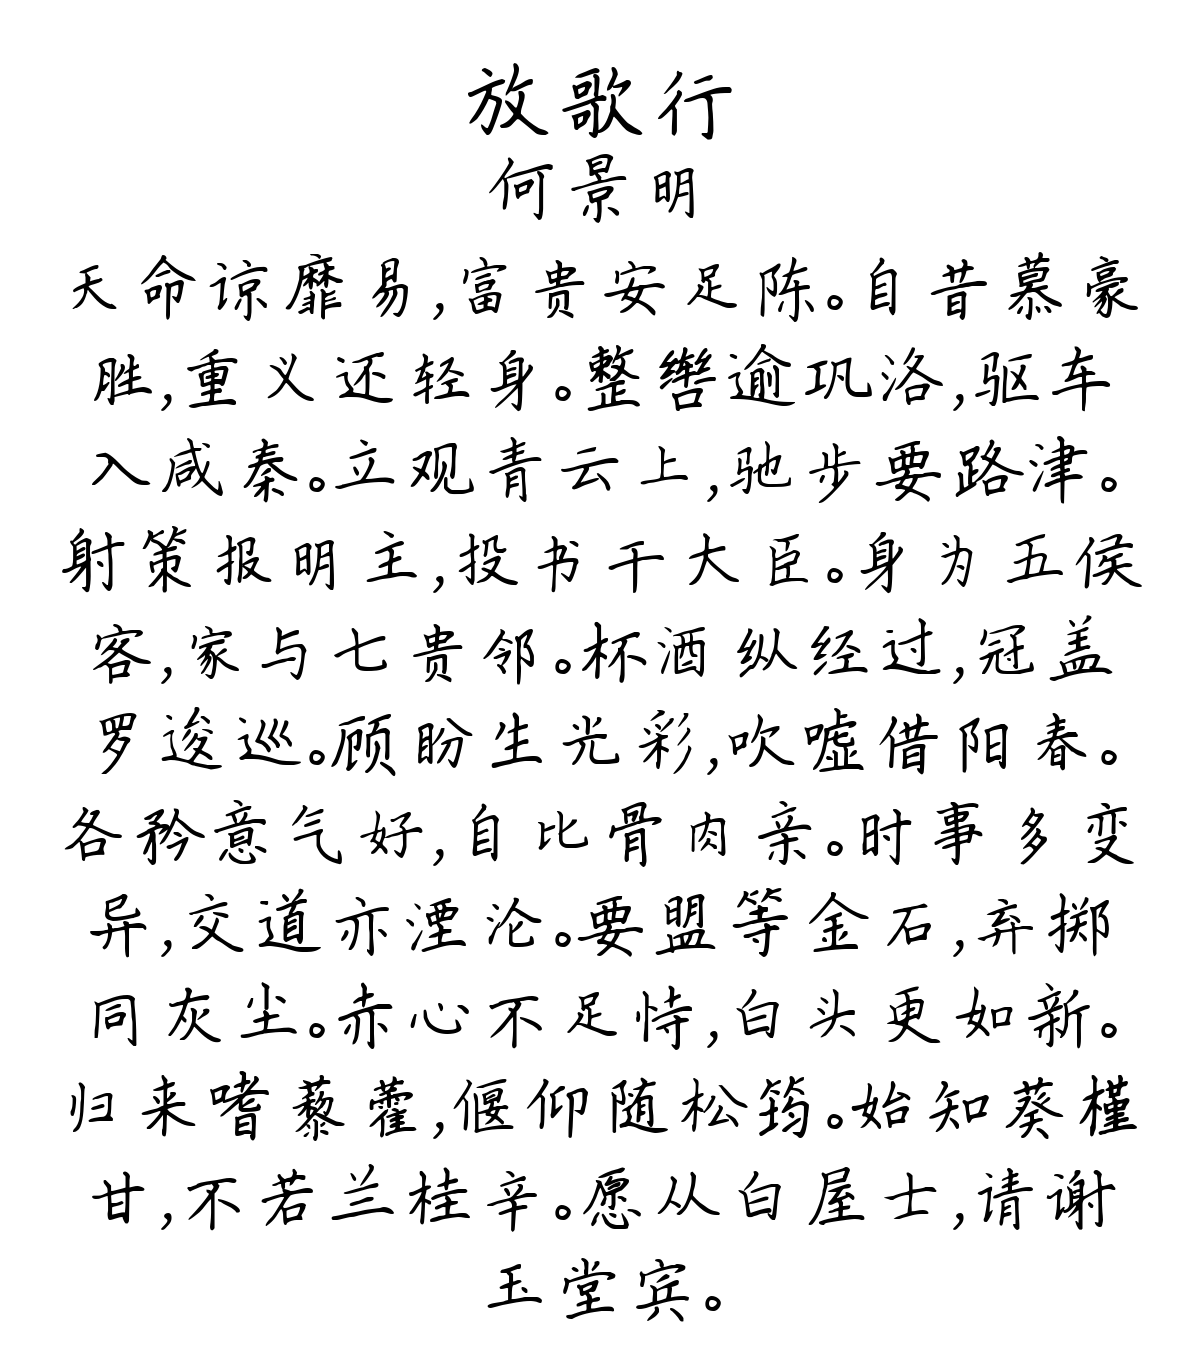 放歌行
何景明
天命谅靡易,富贵安足陈。自昔慕豪
胜,重义还轻身。整辔逾巩洛,驱车
入咸秦。立观青云上,驰步要路津。
射策报明主,投书干大臣。身为五侯
客,家与七贵邻。杯酒纵经过,冠盖
罗逡巡。顾盼生光彩,吹嘘借阳春。
各矜意气好,自比骨肉亲。时事多变
异,交道亦湮沦。要盟等金石,弃掷
同灰尘。赤心不足恃,白头更如新。
归来嗜藜藿,偃仰随松筠。始知葵槿
甘,不若兰桂辛。愿从白屋士,请谢
玉堂宾。